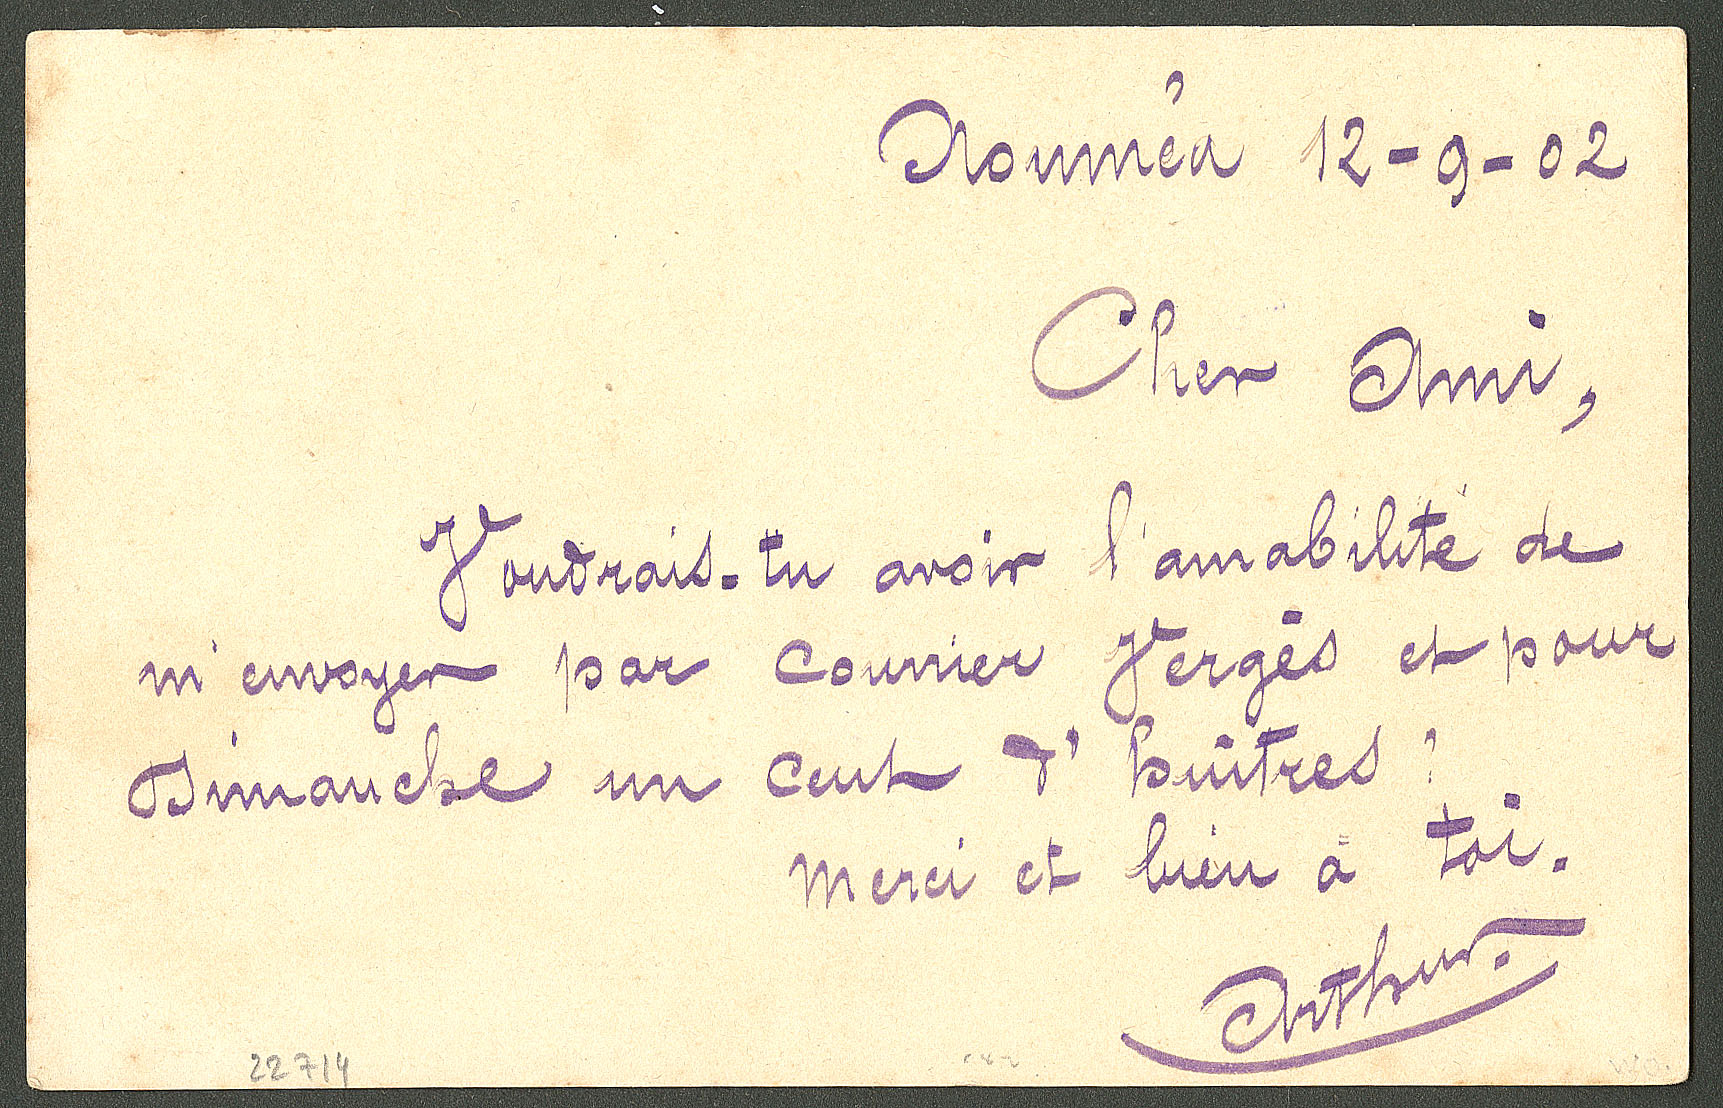 Nouméa 12-9-02
Cher Ami,
Voudrais-tu avoir l'amabilité de
m'envoyer par courrier Vergès et pour
Dimanche un cent d'huîtres ?
Merci et bien à toi.
Arthur.
22714